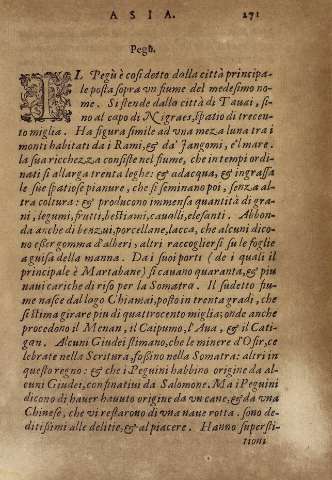 ASIA. 271
Pegù.
IL Pegù è così detto dalla città principa-
le posta sopra vn fiume del medesimo no-
me. Si stende dallo città di Tauai, si-
no al capo di Nigraes, spatio di trecen-
to miglia. Ha figura simile ad vna meza luna tra i
monti habitati da i Rami, & da' Jangomi, e'l mare.
la sua ricchezza consiste nel fiume, che in tempi ordi-
nati si allarga trenta leghe: & adacqua, & ingrassa
le sue spatiose pianure, che si seminano poi, senza al-
tra coltura: & producono immensa quantità di gra-
ni, legumi, frutti, bestiami, caualli, elefanti. Abbon-
da anche di benzui, porcellane, lacca, che alcuni dico-
no esser gomma d'alberi, altri raccogliersi su le foglie
a guisa della manna. Da i suoi porti (de i quali il
principale è Martabane) si cauano quaranta, & piu
naui cariche di riso per la Somatra. Il sudetto fiu-
me nasce dal lago Chiamai, posto in trenta gradi, che
si stima girare piu di quattrocento miglia; onde anche
procedono il Menan, il Caipumo, l'Aua, & il Cati-
gan. Alcuni Giudei stimano, che le minere d'Ofir, ce-
lebrate nella Scritura, fossino nella Somatra: altri in
questo regno: & che i Peguini habbino origine da al-
cuni Giudei, confinatiui da Salomone. Ma i Peguini
dicono di hauer hauuto origine da vn cane, & da vna
Chinese, che vi restarono di vna naue rotta. sono de-
ditissimi alle delitie, & al piacere. Hanno supersti-
tioni